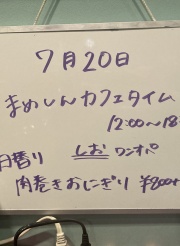 7月20日
まめしんカフェタイム
12:00〜18
月替り しお ワンオペ
肉巻きおにぎり ¥800